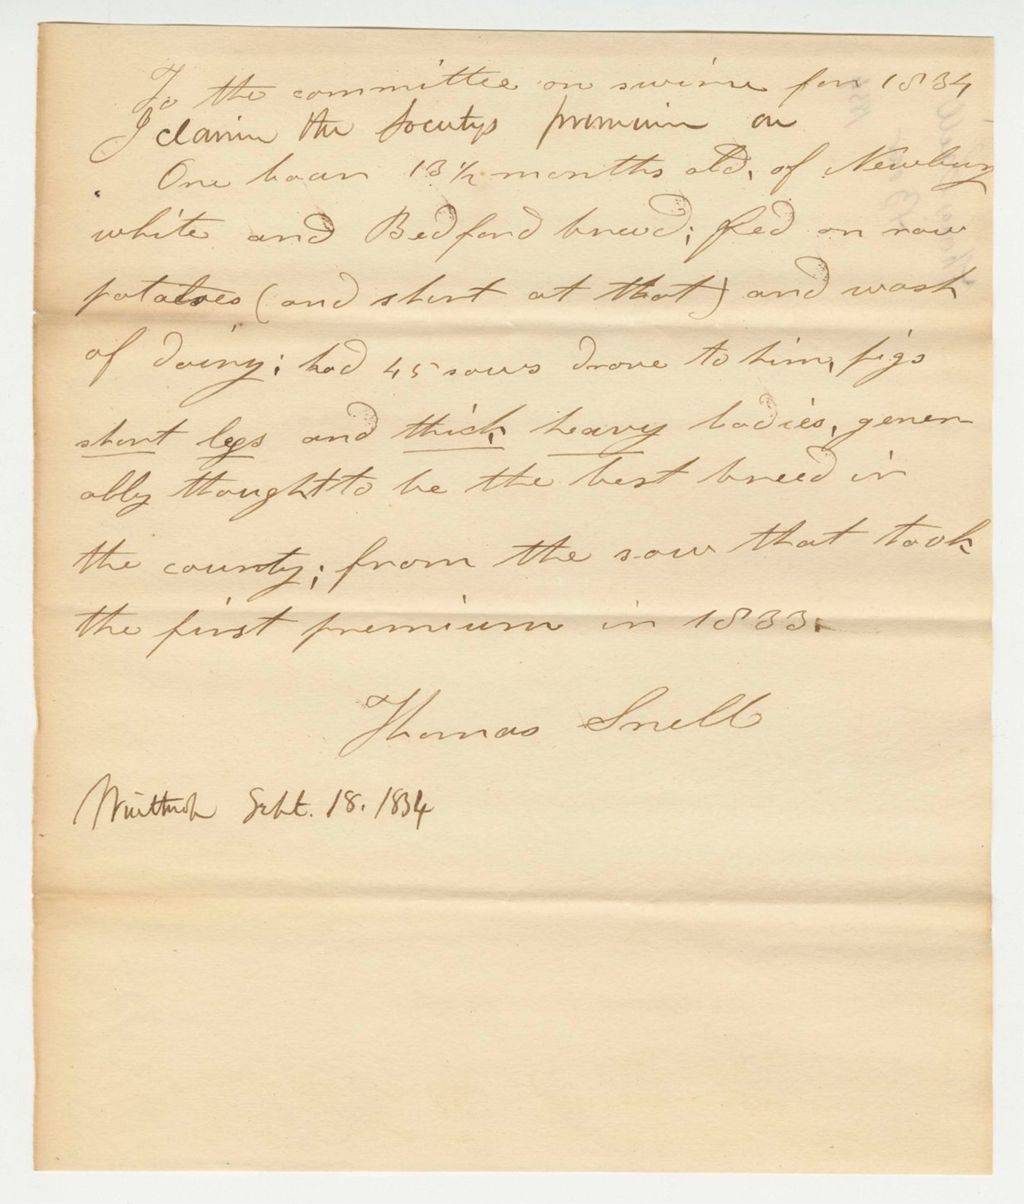 To the committee on swine for 1834
I claim the Societys premium on
One boar 13 1/2 months old, of Newbury
white and Bedford breed; fed on raw
potatoes (and short at that) and wash
of dairy; had 45 sows drove to him, pigs
short legs and thick, heavy bodies, gener
ally thought to be the best breed in
the county; from the sow that took
the first premium in 1833.
Thomas Snell
Winthrop Sept. 18. 1834